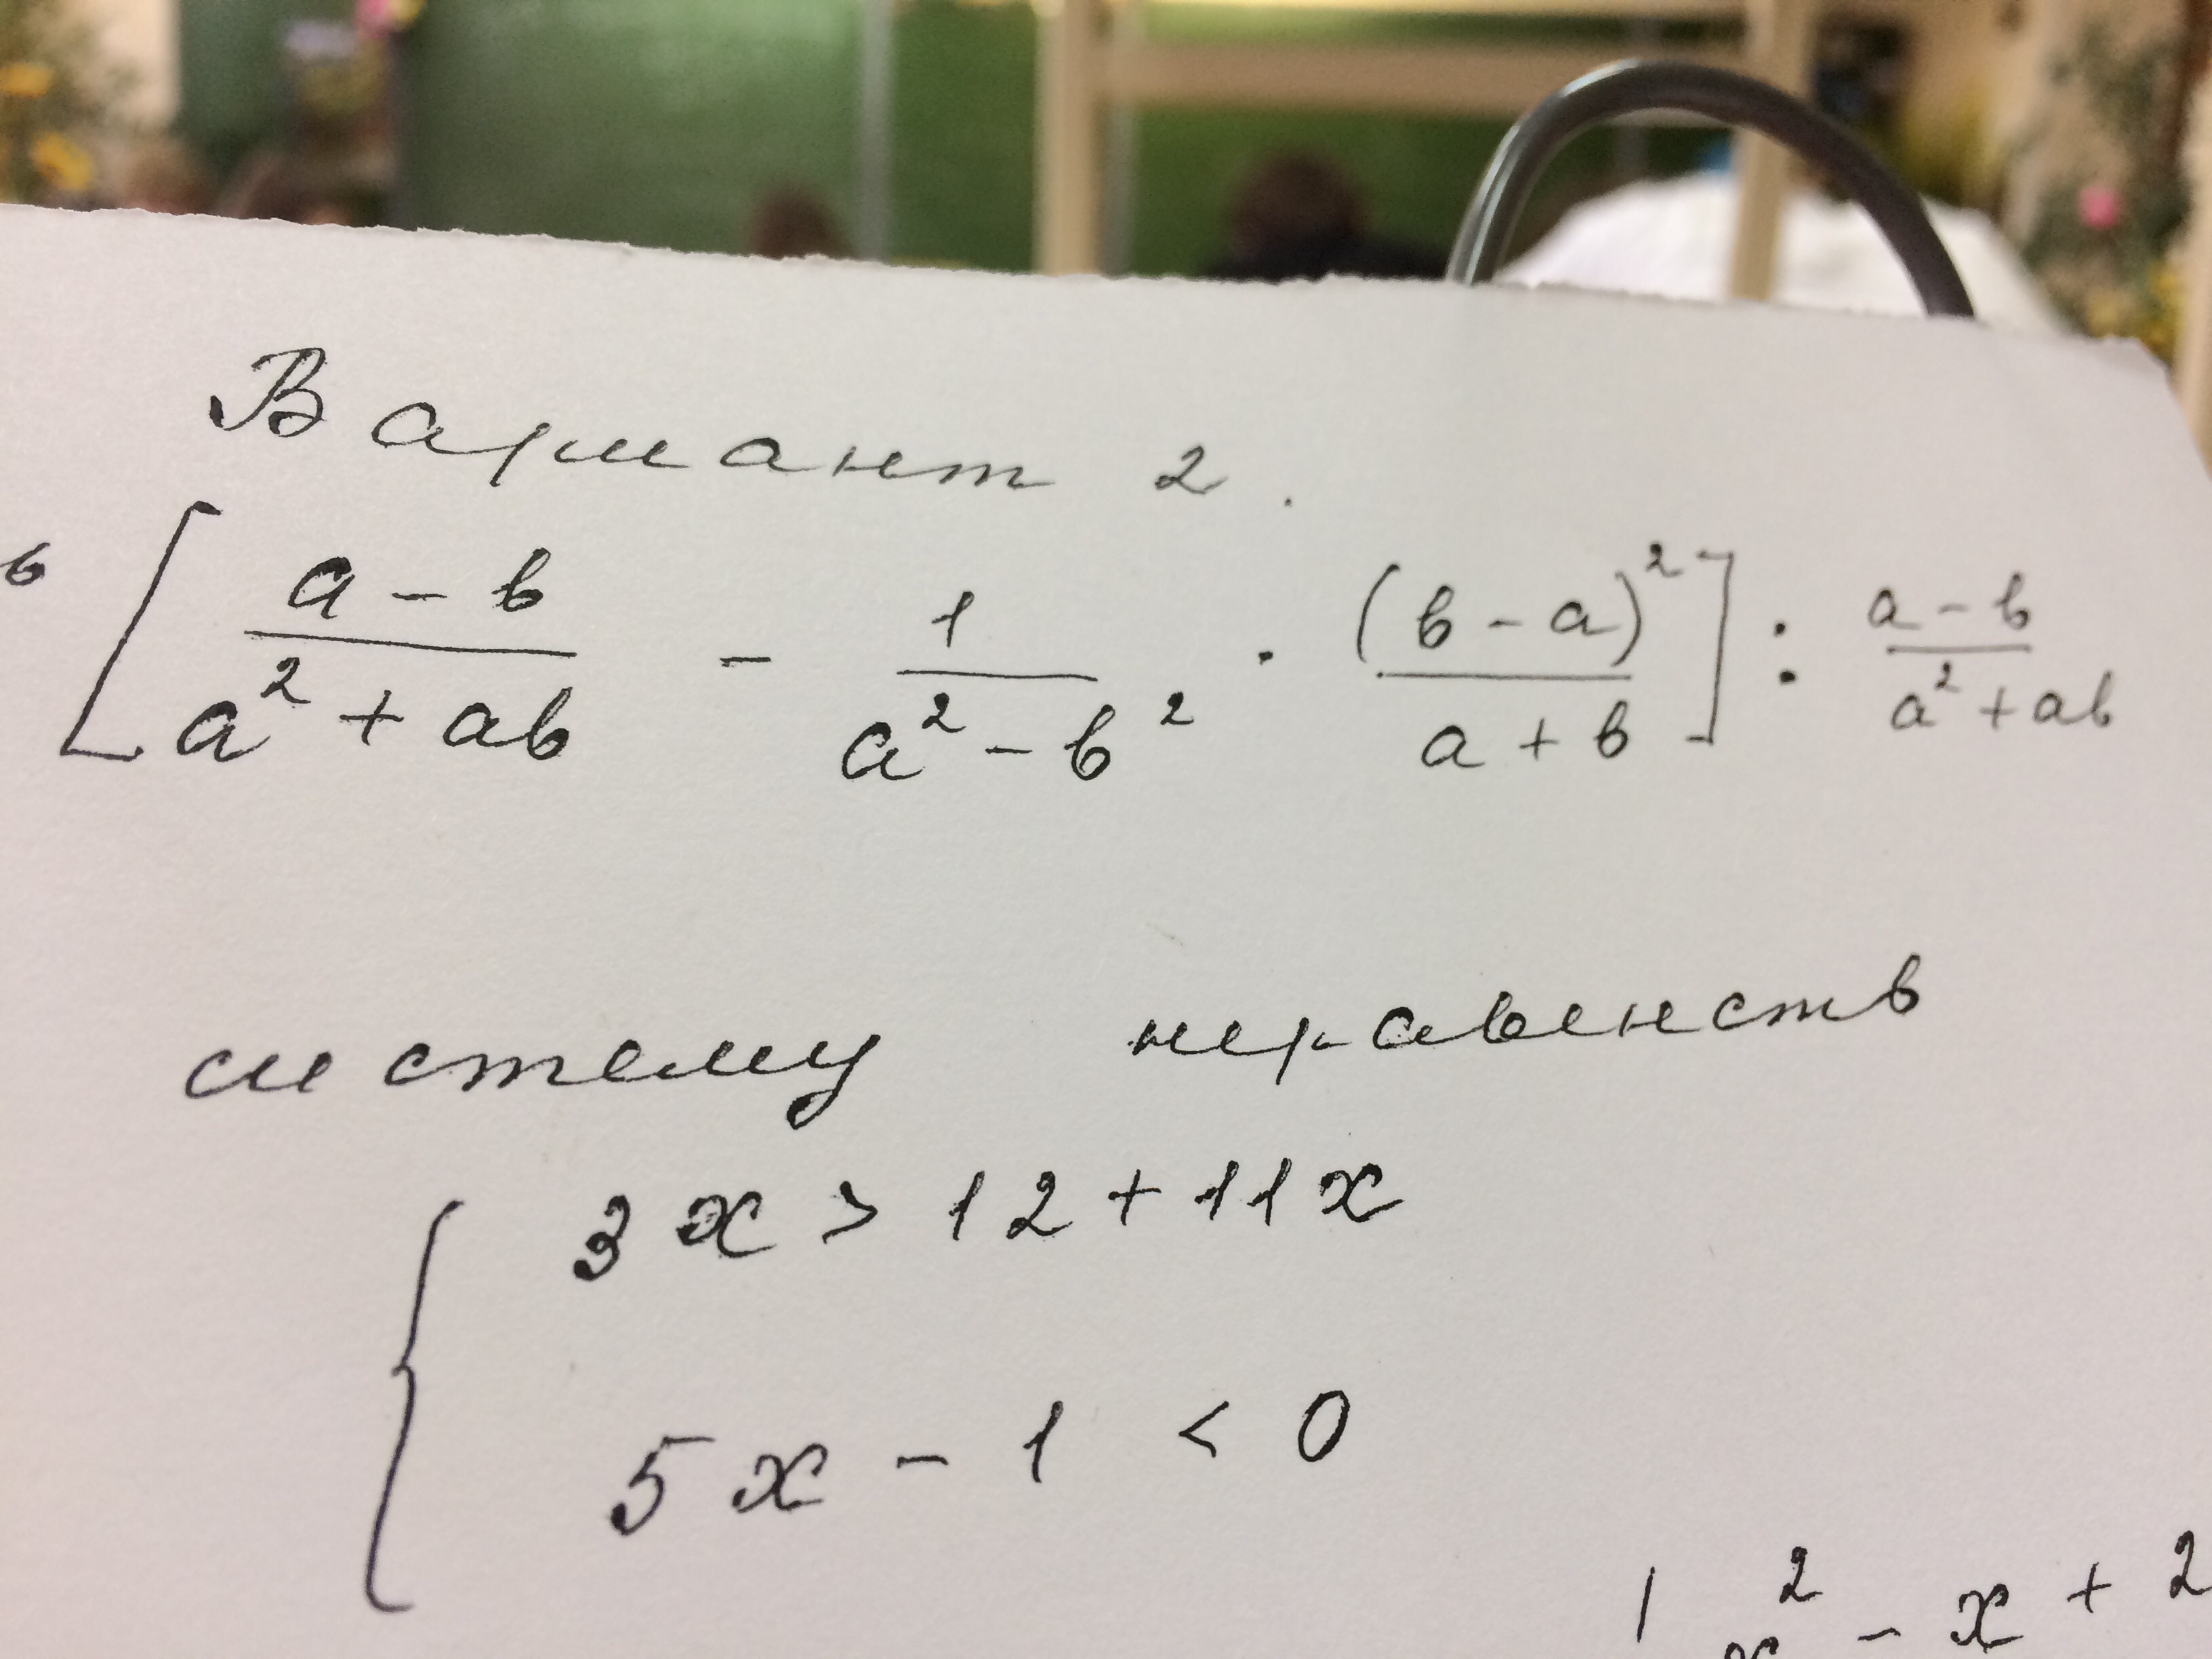 Вариант 2.
в [ (a - b)/(a² + ab) - 1/(a² - b²) · (b - a)²/(a + b) ] : (a - b)/(a² + ab)
систему неравенств
{ 3x > 12 + 11x
5x - 1 < 0
x² - x + 2